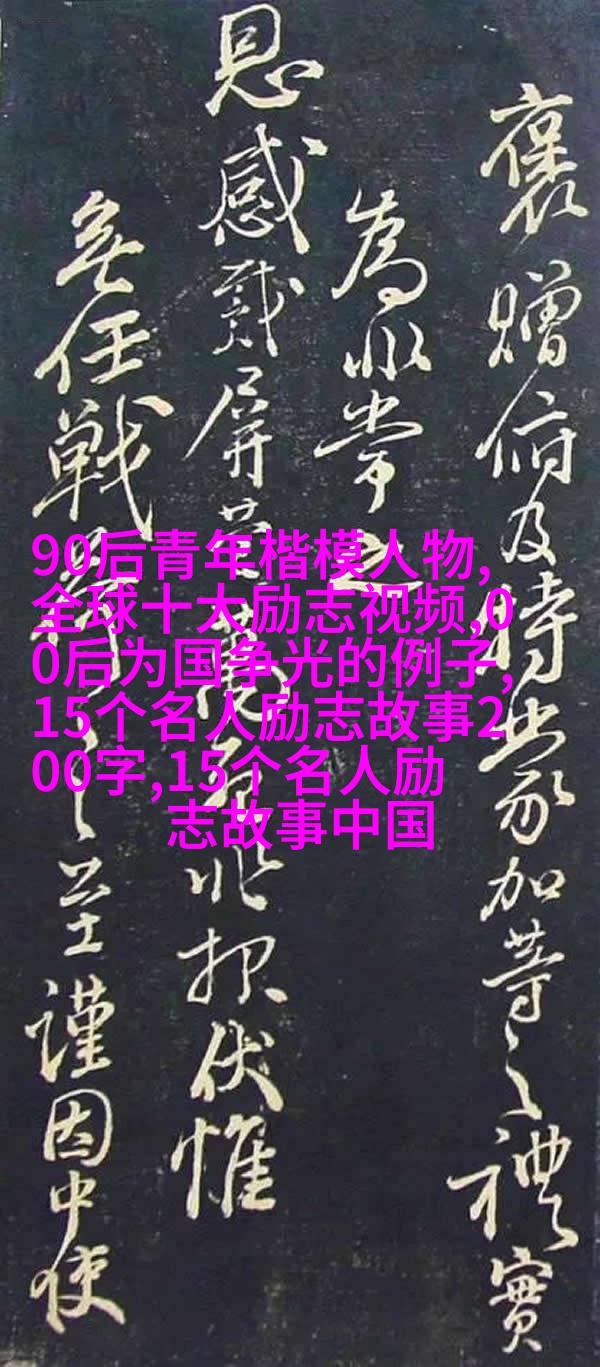 褒赠俯及特蒙加等之禮實
為非常之
恩感戴屏營
無任戰
之至謹因中使
伏惟
90后青年楷模人物,
全球十大励志视频,0
0后为国争光的例子,
15个名人励志故事2
00字,15个名人励
志故事中国